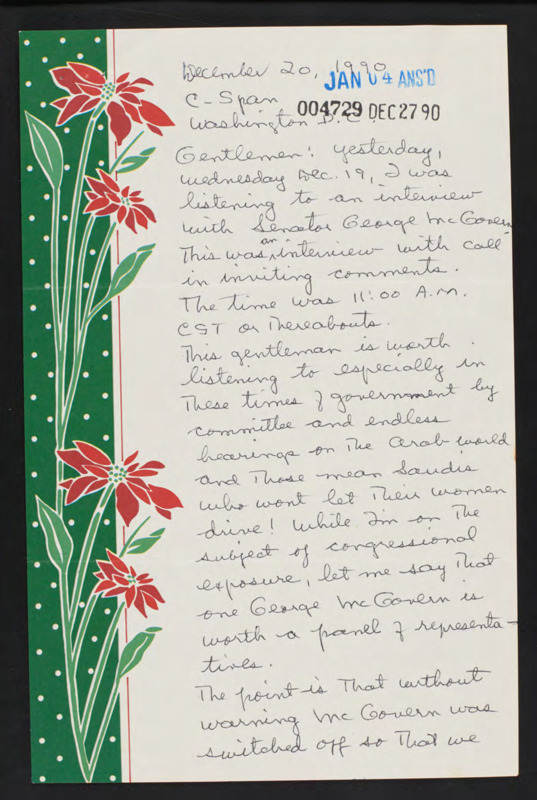 December 20, 1990
JAN 04 ANS'D
C-Span
004729 DEC 27 90
Washington D.C.
Gentlemen: Yesterday,
Wednesday Dec. 19, I was
listening to an interview
with Senator George McGovern
This was an interview with call
in inviting comments.
The time was 11:00 A.M.
CST or Thereabouts.
This gentleman is worth
listening to especially in
These times of government by
committee and endless
hearings on The Arab world
and Those mean Saudis
who wont let Their women
drive! While I'm on The
subject of congressional
exposure, let me say That
one George McGovern is
worth a panel of representa-
tives.
The point is That without
warning McGovern was
switched off so That we